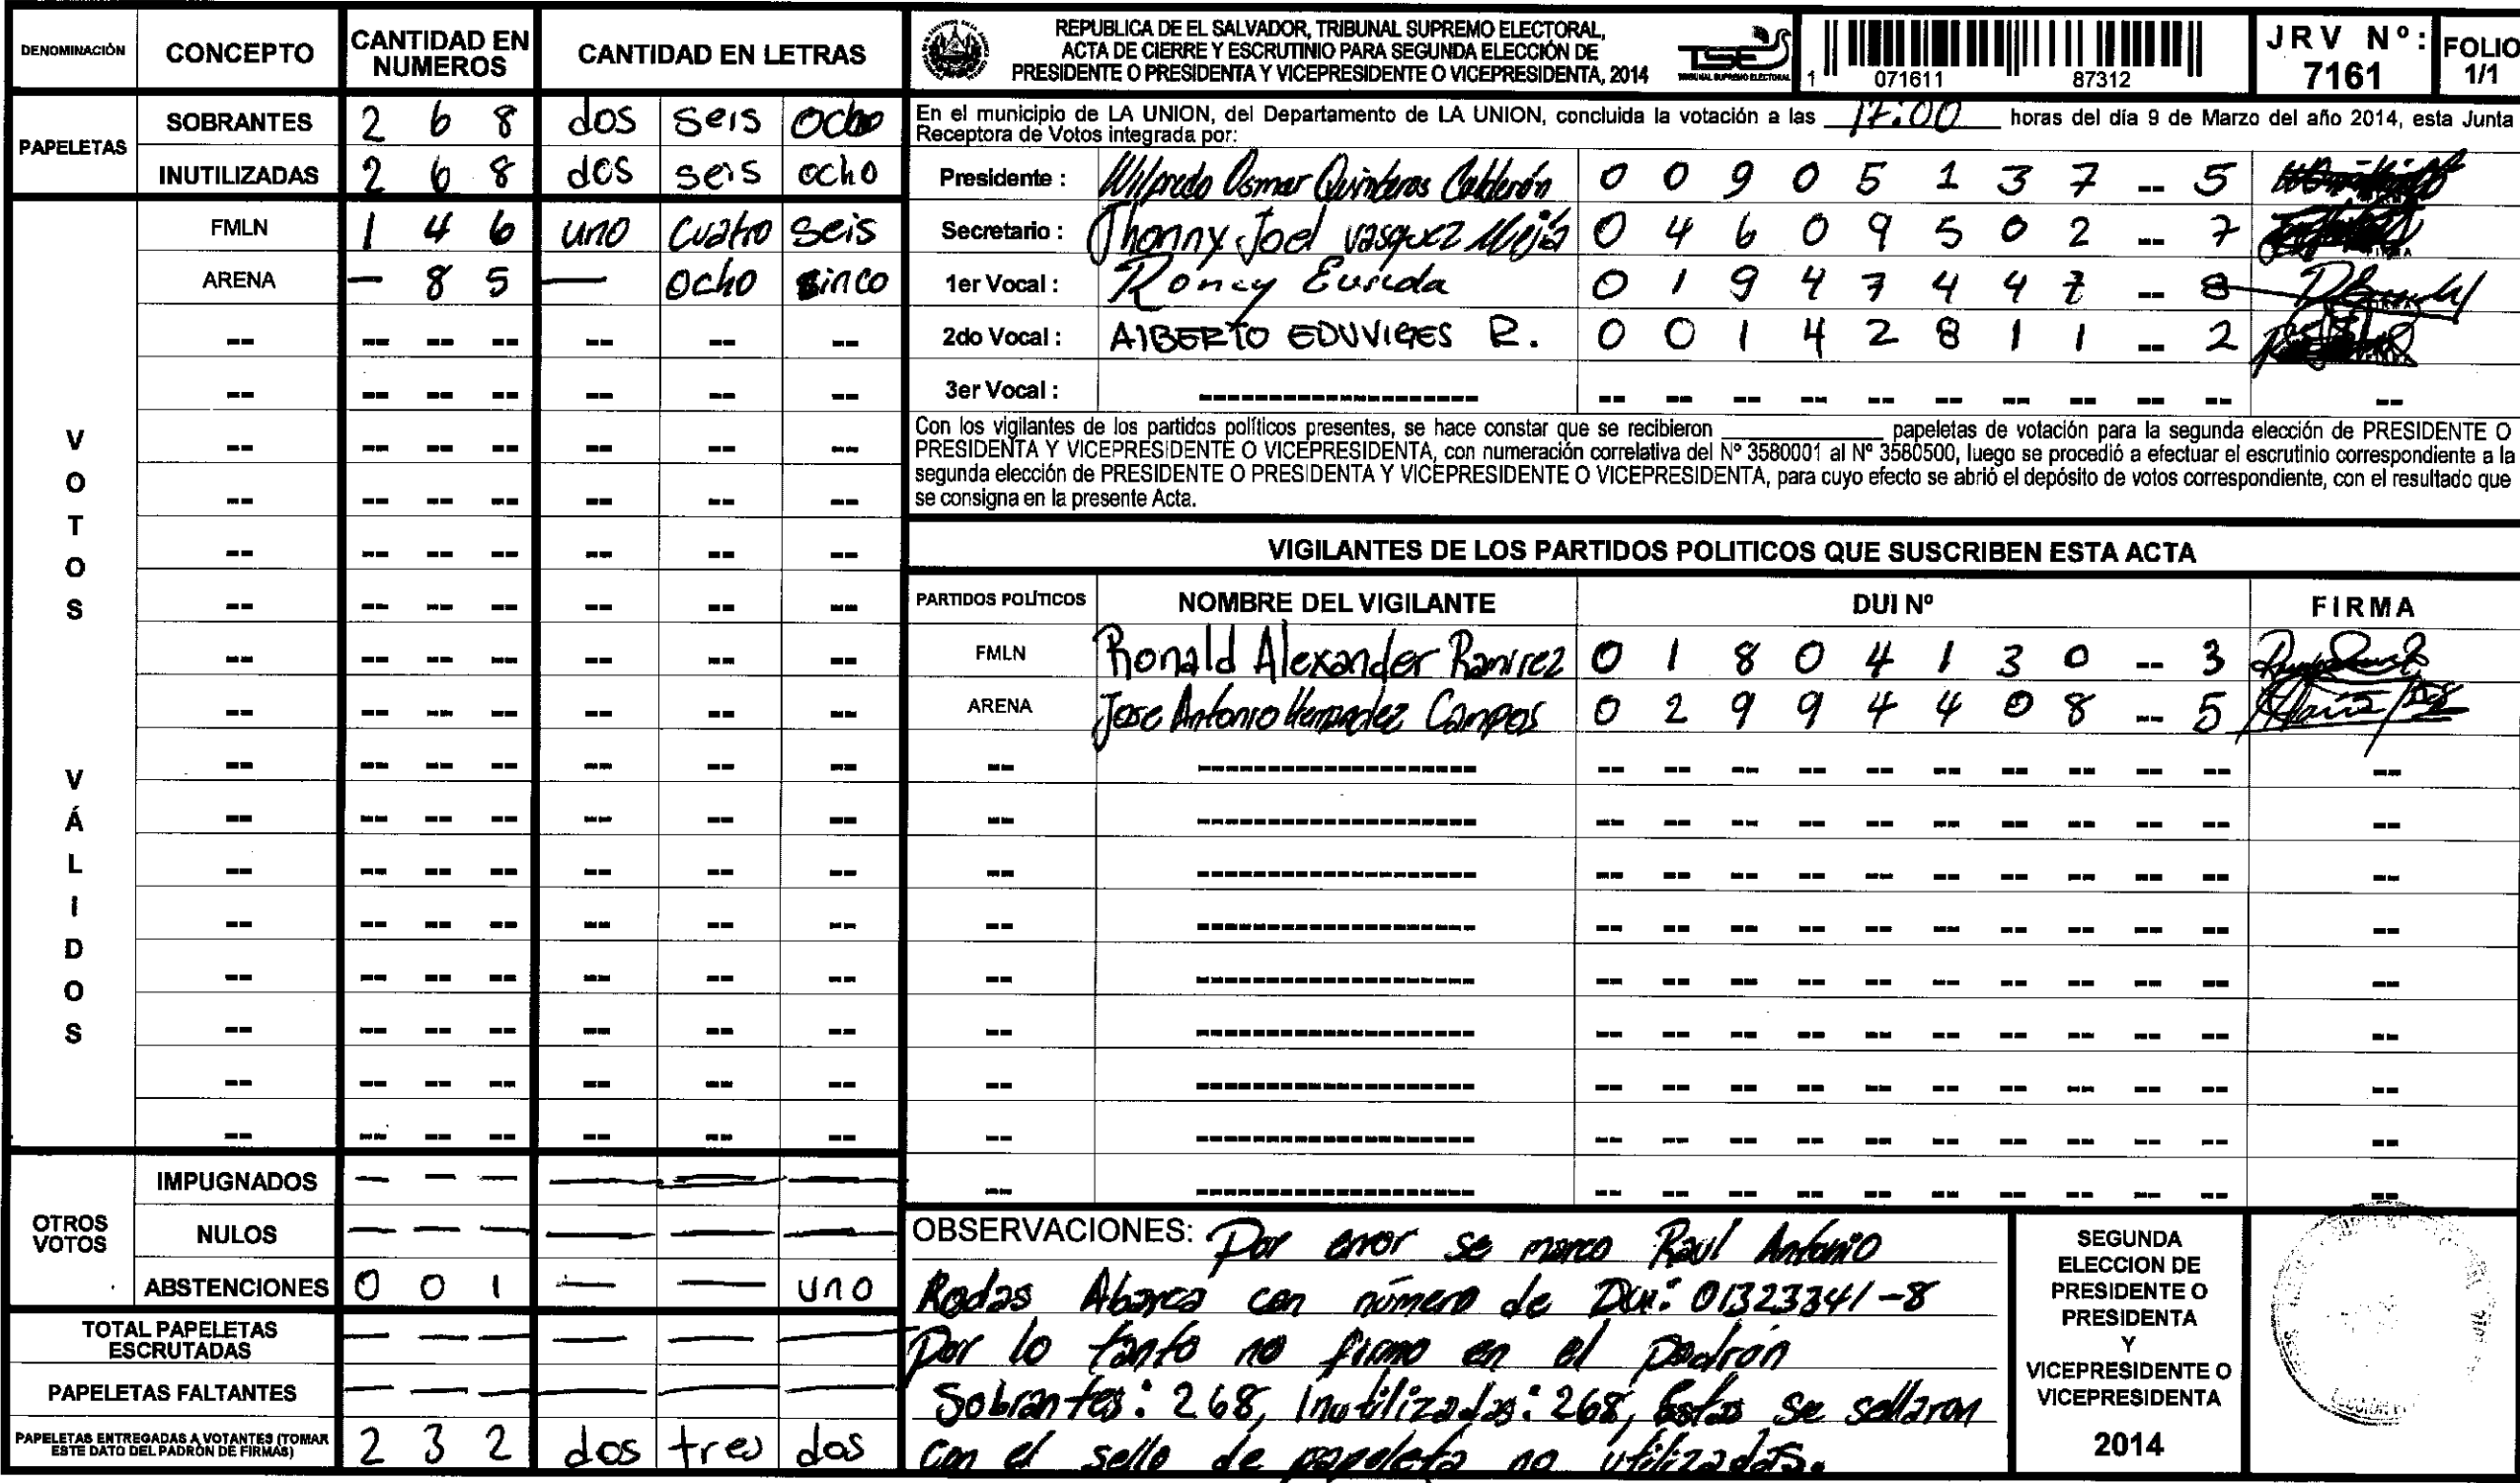 DENOMINACIÓN CONCEPTO CANTIDAD EN NUMEROS CANTIDAD EN LETRAS
PAPELETAS
SOBRANTES 2 6 8 dos seis ocho
INUTILIZADAS 2 6 8 dos seis ocho
VOTOS VÁLIDOS
FMLN 1 4 6 uno cuatro seis
ARENA - 8 5 — ocho sinco
OTROS VOTOS
IMPUGNADOS — — — — — —
NULOS — — — — — —
ABSTENCIONES 0 0 1 — — uno
TOTAL PAPELETAS ESCRUTADAS — — — — — —
PAPELETAS FALTANTES — — — — — —
PAPELETAS ENTREGADAS A VOTANTES (TOMAR ESTE DATO DEL PADRÓN DE FIRMAS) 2 3 2 dos tres dos
REPUBLICA DE EL SALVADOR, TRIBUNAL SUPREMO ELECTORAL,
ACTA DE CIERRE Y ESCRUTINIO PARA SEGUNDA ELECCIÓN DE
PRESIDENTE O PRESIDENTA Y VICEPRESIDENTE O VICEPRESIDENTA, 2014
TSE
TRIBUNAL SUPREMO ELECTORAL
1 071611 87312
JRV Nº: 7161
FOLIO 1/1
En el municipio de LA UNION, del Departamento de LA UNION, concluida la votación a las 17:00 horas del día 9 de Marzo del año 2014, esta Junta
Receptora de Votos integrada por:
Presidente : Wilfredo Osmar Quinteros Calderón 0 0 9 0 5 1 3 7 -- 5
Secretario : Jhonny Joel vasquez Mejia 0 4 6 0 9 5 0 2 -- 7
1er Vocal : Roncy Eurida 0 1 9 4 7 4 4 7 -- 8
2do Vocal : AlBERTO EDUVIGES R. 0 0 1 4 2 8 1 1 -- 2
3er Vocal :
Con los vigilantes de los partidos políticos presentes, se hace constar que se recibieron ____________ papeletas de votación para la segunda elección de PRESIDENTE O
PRESIDENTA Y VICEPRESIDENTE O VICEPRESIDENTA, con numeración correlativa del Nº 3580001 al Nº 3580500, luego se procedió a efectuar el escrutinio correspondiente a la
segunda elección de PRESIDENTE O PRESIDENTA Y VICEPRESIDENTE O VICEPRESIDENTA, para cuyo efecto se abrió el depósito de votos correspondiente, con el resultado que
se consigna en la presente Acta.
VIGILANTES DE LOS PARTIDOS POLITICOS QUE SUSCRIBEN ESTA ACTA
PARTIDOS POLÍTICOS NOMBRE DEL VIGILANTE DUI Nº FIRMA
FMLN Ronald Alexander Ramirez 0 1 8 0 4 1 3 0 -- 3
ARENA Jose Antonio Hernandez Campos 0 2 9 9 4 4 0 8 -- 5
OBSERVACIONES: Por error se marco Raul Antonio
Rodas Abarca con número de Dui: 01323341-8
Por lo tanto no firmo en el padrón
Sobrantes: 268, Inutilizadas: 268, Estas se sellaron
con el sello de papeleta no utilizadas.
SEGUNDA
ELECCION DE
PRESIDENTE O
PRESIDENTA
Y
VICEPRESIDENTE O
VICEPRESIDENTA
2014